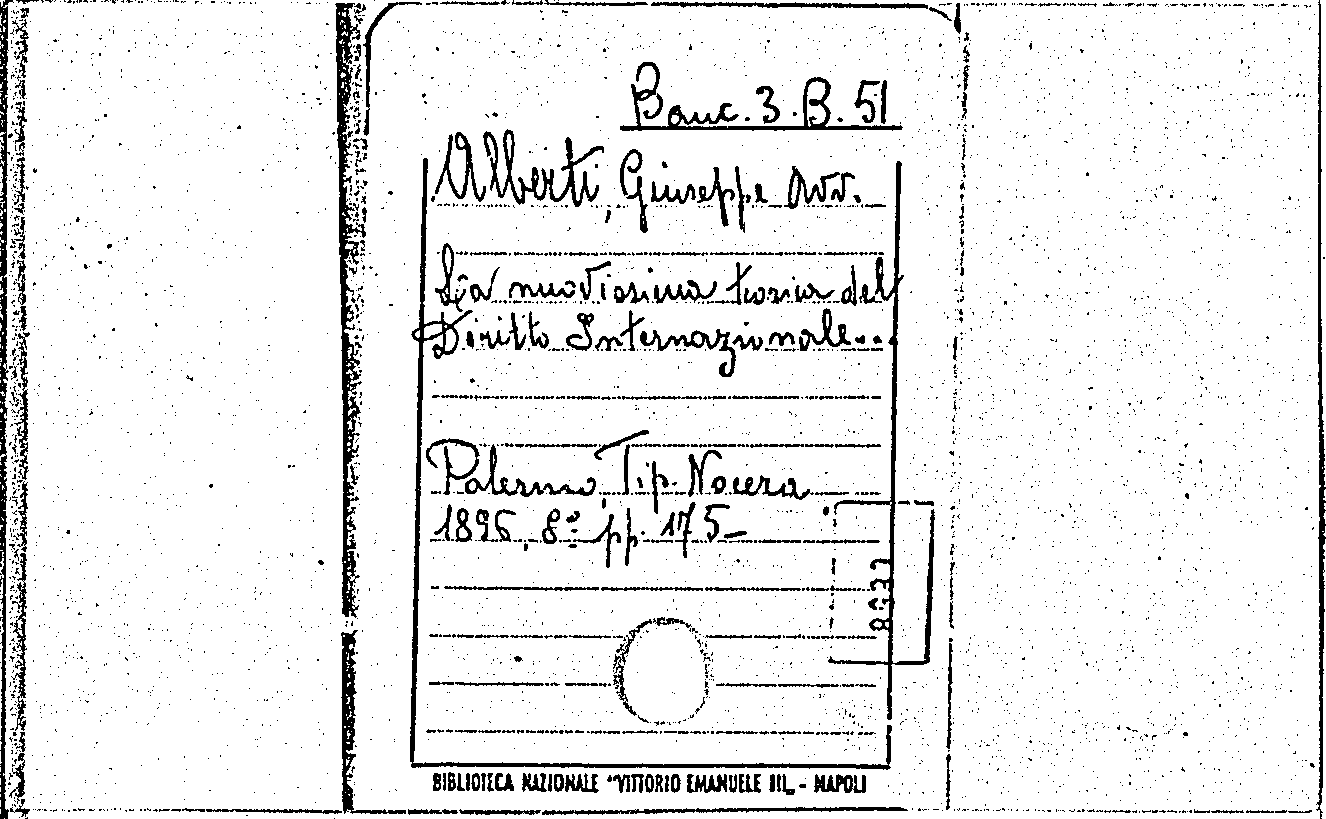 Banc. 3. B. 51
Alberti, Giuseppe Avv.
La nuovissima teoria del
Diritto Internazionale...
Palermo, Tip. Nocera
1896, 8º pp. 175-
BIBLIOTECA NAZIONALE "VITTORIO EMANUELE III„ - NAPOLI